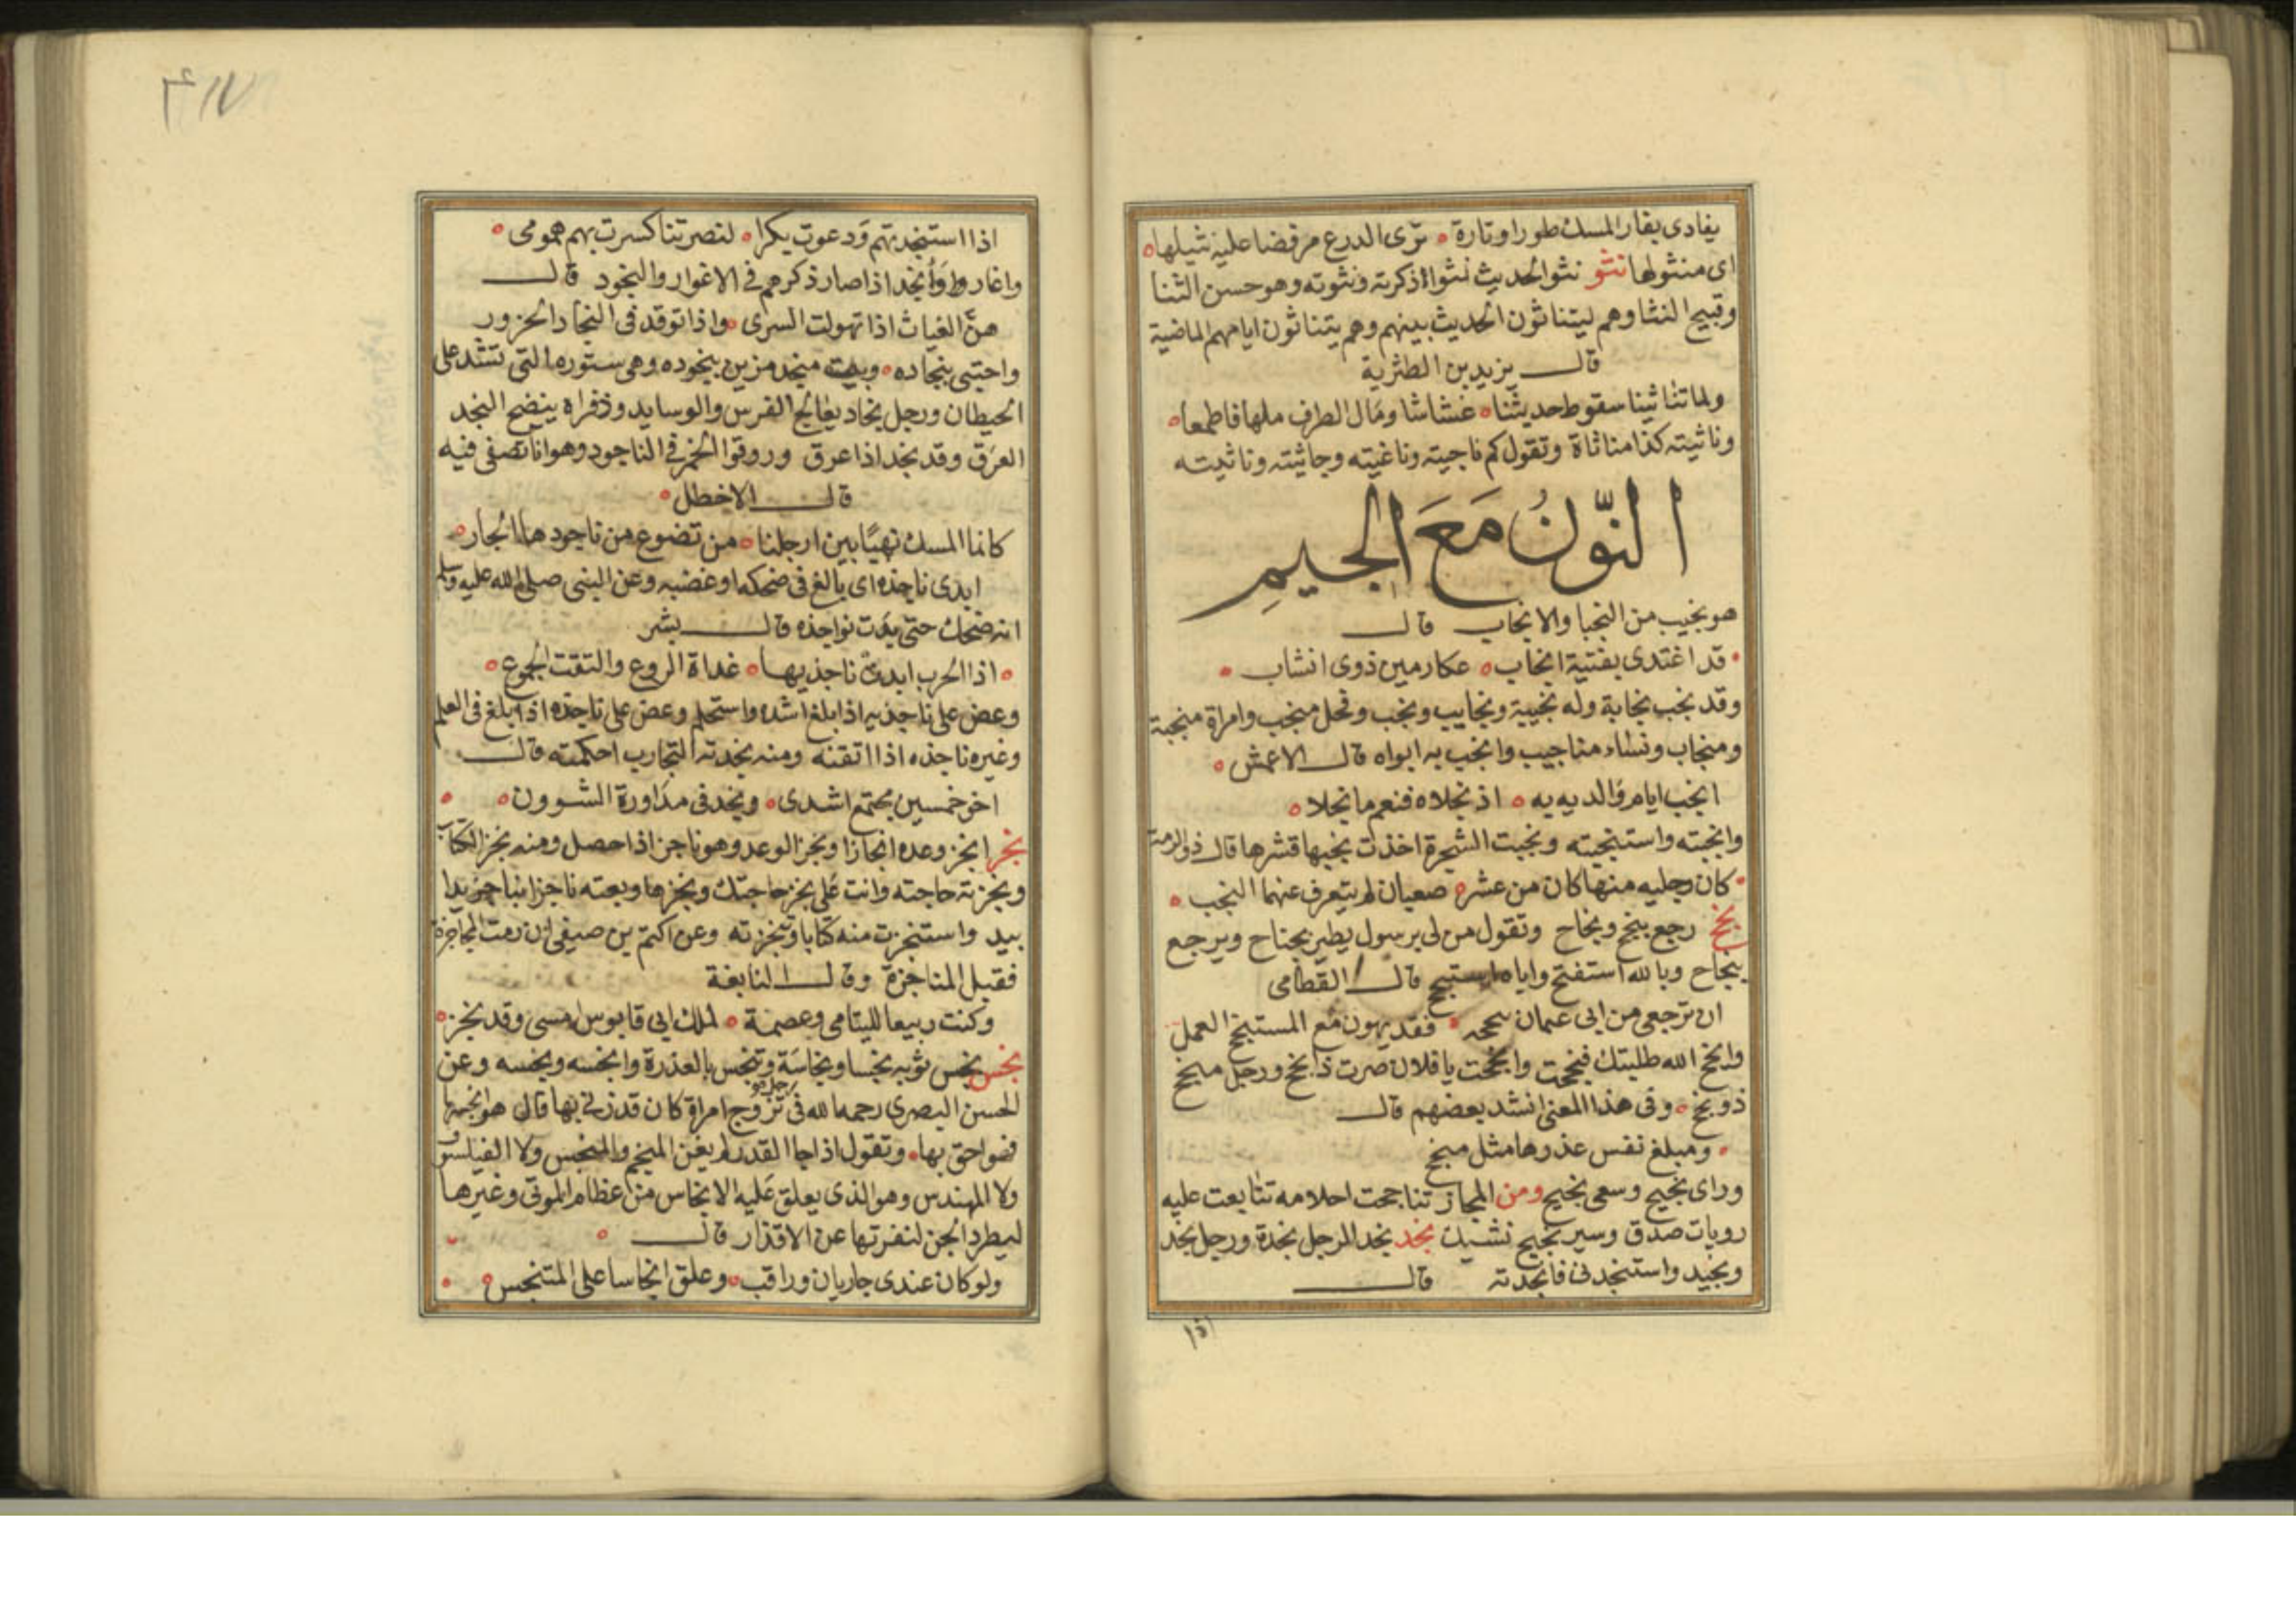 يفادى بفار المسك طورا وتارة ترى الدرع مرفضا عليه نثيلها
اى منثولها نثو نثوا لحديث نثوا اذكرته ونثوته وهو حسن الثنا
وقبيح النثا وهم ليتناثون الحديث بينهم وهم يتناثون ايامهم الماضية
قال يزيد بن الطثرية
ولما تناثينا سقوط حديثنا غشاشا ومال الطرف ملها فاطمعا
وناثيته كذا مناثاة وتقول كم ناجيته وناغيته وجاثيته وناثيته
النّونُ مَعَ الجيمِ
هو نجيب من النجبا والانجاب قال
قد اغتدى بفتية انجاب عكارمين ذوى انشاب
وقد نجب نجابة وله نجيبة ونجايب ونجب وفحل منجب وامراة منجبة
ومنجاب ونساء مناجيب وانجب به ابواه قال الاعمش
انجب ايام والديه به اذ نجلاه فنعم ما نجلا
وانجبته واستنجبته ونجبت الشجرة اخذت نجبها قشرها قال ذو الرمة
كان رجليه منها كان من عشر صعبان لم يتعرف عنهما النجب
نجح رجع بنجح ونجاح وتقول من لى برسول يطير بجناح ويرجع
بنجاح وبالله استفتح واياه استنجح قال القطامى
ان ترجعى من ابى عثمان منجحه فقد يهون مع المستنجح العمل
وانجح الله طلبتك فنجحت وانجحت يا فلان صرت ذا نجح ورجل منجح
ذو نجح وفى هذا المعنى انشد بعضهم قال
ومبلغ نفس عذرها مثل منجح
وراى نجيح وسعى نجيح ومن المجاز تناجحت احلامه تتابعت عليه
رويات صدق وسير نجيح نشيك نجد نجد الرجل نجدة ورجل نجد
ونجيد واستنجدنى فانجدته قال
اذا
اذا استنجدتهم ودعوت بكرا لنصرتنا كسرت بهم همومى
واغاروا وأنجد اذا صار ذكرهم فى الاغوار والنجود قال
هنّ الغياث اذا تهولت السرى واذا توقد فى النجاد الحزور
واحتبى بنجاده وبيت منجد مزين بنجوده وهى ستوره التى تشد على
الحيطان ورجل نجاد يعالج الفرس والوسايد وذفراه ينضح النجد
العرق وقد نجد اذا عرق وروقوا الخمر فى الناجود وهو انا تصفى فيه
قال الاخطل
كانما المسك نهبًا بين ارجلنا من تضوع من ناجودها الجار
ابدى ناجذه اى بالغ فى ضحكه او غضبه وعن النبى صلى الله عليه وسلم
انه ضحك حتى بدت نواجذه قال بشر
اذا الحرب ابدت ناجذيها غداة الروع والتقت الجموع
وعض على ناجذيه اذا بلغ اشده واستحلم وعض على ناجذه اذا بلغ فى العلم
وغيره ناجذه اذا اتقنه ومنه نجذته التجارب احكمته قال
اخو خمسين مجتمع اشدى ونجذنى مداورة الشوون
نجز انجز وعده انجازا ونجز الوعد وهو ناجز اذا حصل ومنه نجز الكتاب
ونجزته حاجته وانت على نجز حاجتك ونجزها وبعته ناجزا بناجز يدا
بيد واستنجزت منه كتابا وتنجزته وعن اكثم بن صيفى ان رمت المحاجزة
فقبل المناجزة وقال النابغة
وكنت ربيعا لليتامى وعصمة لملك ابى قابوس امسى وقد نجز
نجس نجس ثوبه نجسا ونجاسة وتنجس بالعذرة وانجسه ونجسه وعن
الحسن البصرى رحمه الله فى رجل هو تزوج امراة كان قد زنى بها قال هو انجسها
فهو احق بها وتقول اذا جا القدر لم يغن المنجم والمنجس ولا الفيلسوف
ولا المهندس وهو الذى يعلق عليه الانجاس من عظام الموتى وغيرها
ليطرد الجن لنفرتها عن الاقذار قال
ولو كان عندى جاريان وراقب وعلق انجاسا على المتنجس